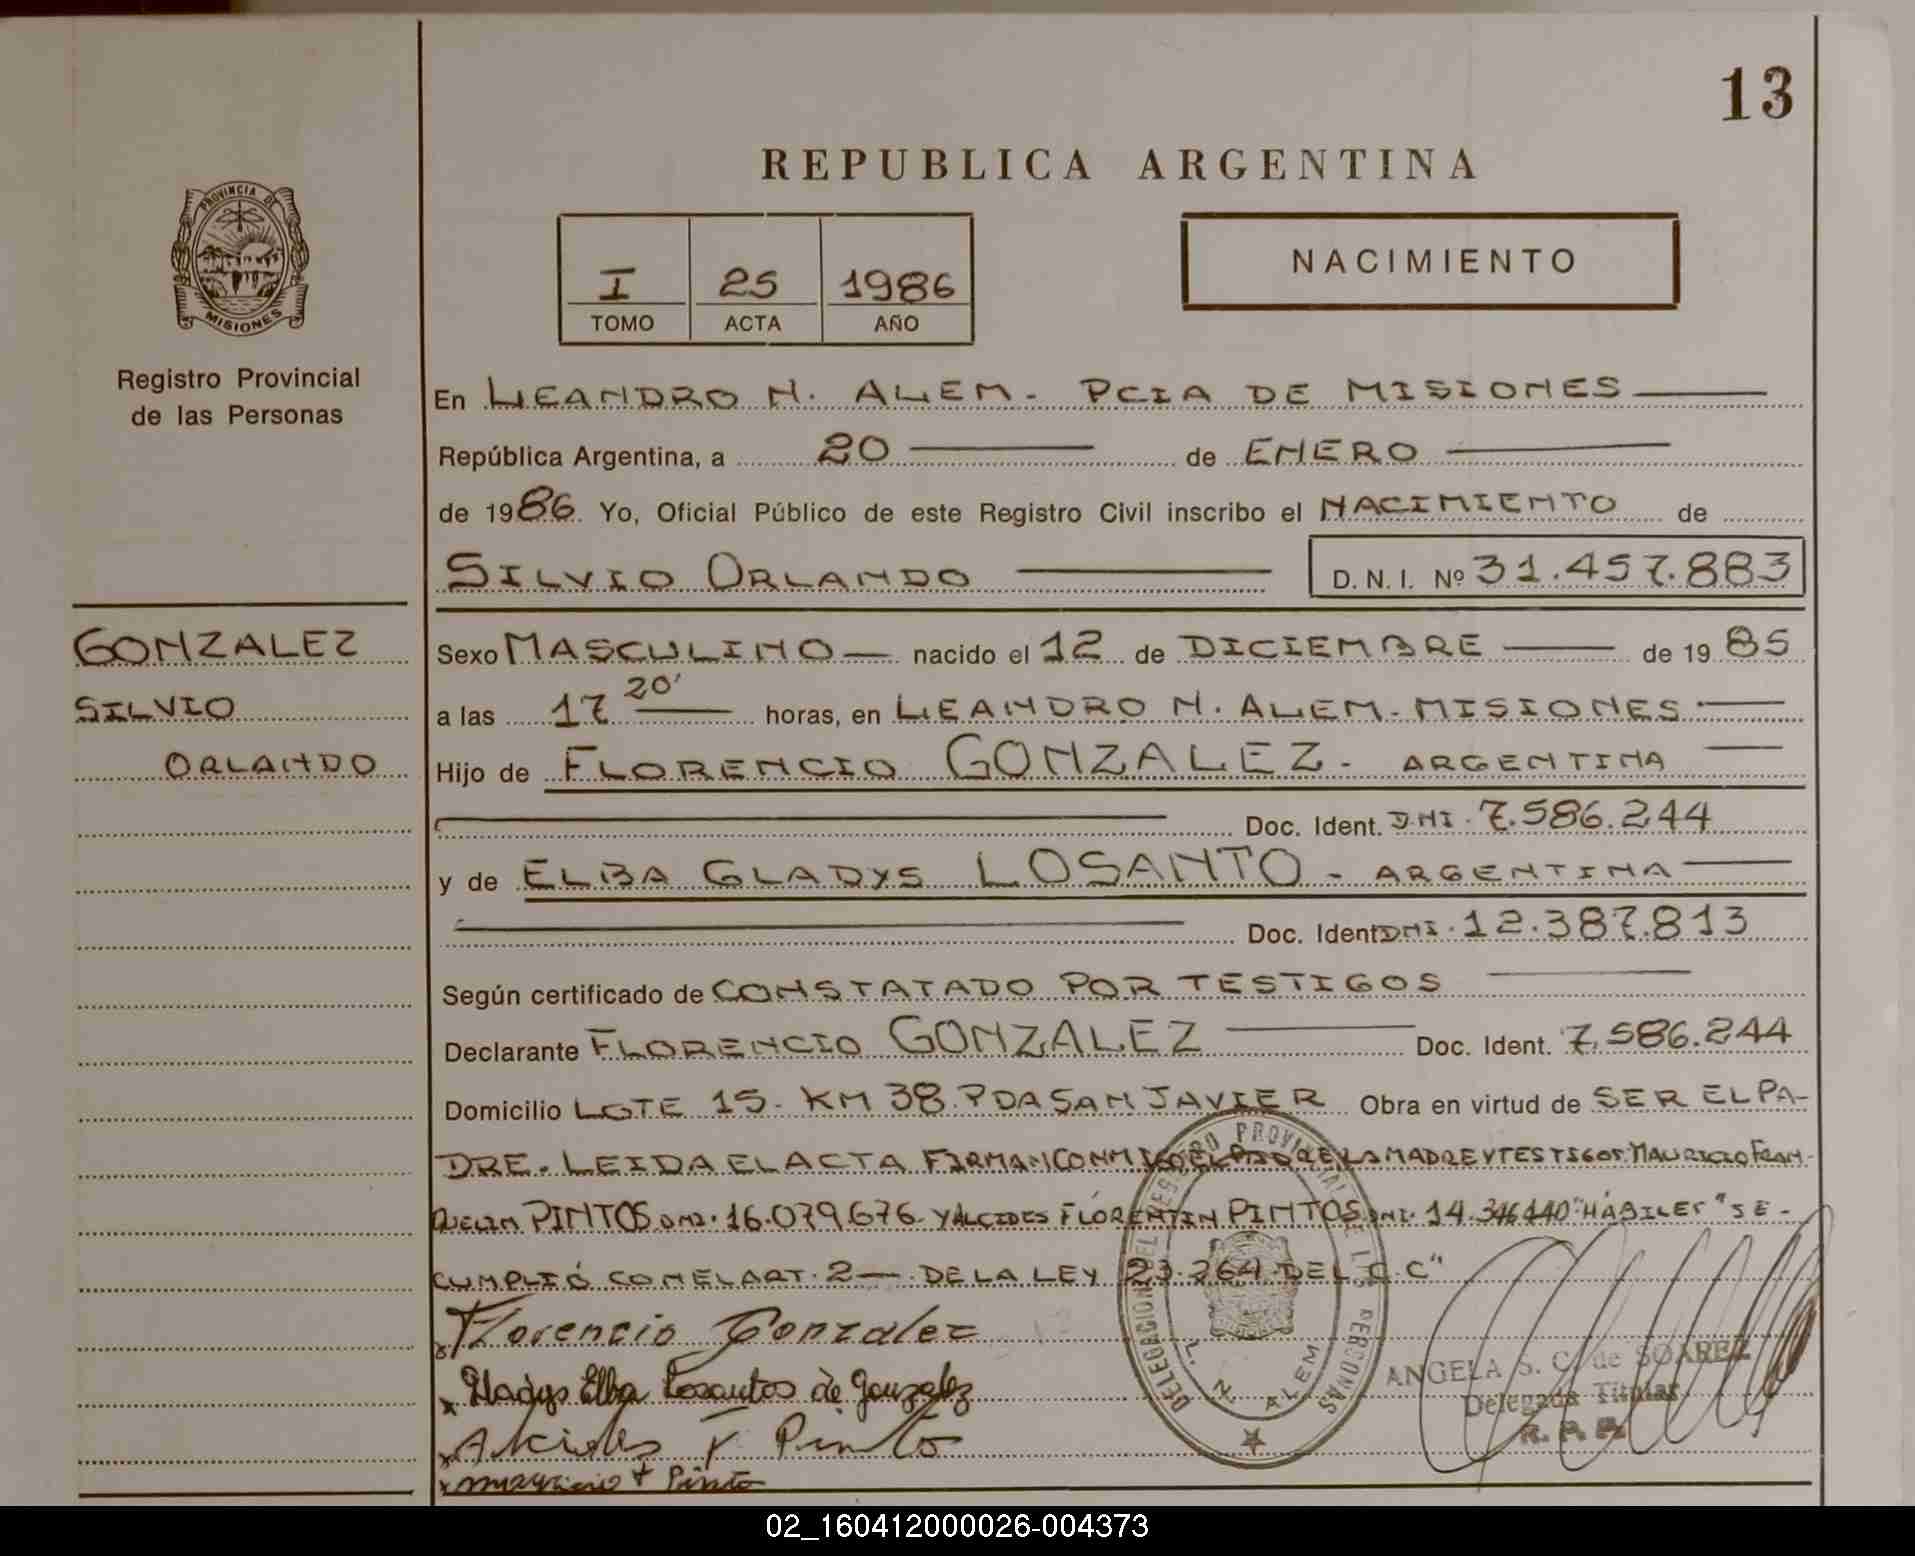 13
REPUBLICA ARGENTINA
PROVINCIA DE
MISIONES
Registro Provincial
de las Personas
I 25 1986
TOMO ACTA AÑO
NACIMIENTO
En LEANDRO N. ALEM. PCIA DE MISIONES
República Argentina, a 20 de ENERO
de 1986. Yo, Oficial Público de este Registro Civil inscribo el NACIMIENTO de
SILVIO ORLANDO D. N. I. Nº 31.457.883
GONZALEZ
SILVIO
ORLANDO
Sexo MASCULINO nacido el 12 de DICIEMBRE de 1985
a las 17 20' horas, en LEANDRO N. ALEM. MISIONES
Hijo de FLORENCIO GONZALEZ. ARGENTINA
Doc. Ident. DNI. 7.586.244
y de ELBA GLADYS LOSANTO - ARGENTINA
Doc. Ident DNI. 12.387.813
Según certificado de CONSTATADO POR TESTIGOS
Declarante FLORENCIO GONZALEZ Doc. Ident. 7.586.244
Domicilio LOTE 15. KM 38. PDA SAN JAVIER Obra en virtud de SER EL PA-
DRE. LEIDA EL ACTA FIRMAN CONMIGO EL PADRE LA MADRE Y TESTIGOS. MAURICIO FRAN-
QUELIN PINTOS DNI. 16.079.676. Y ALCIDES FLORENTIN PINTOS DNI. 14.346.440 "HÁBILES" SE-
CUMPLIÓ CON EL ART. 2 DE LA LEY 23.264 DEL C.C"
Florencio Gonzalez
Gladys Elba Losantos de Gonzalez
Alcides F Pinto
mauricio f Pinto
DELEGACION DEL REGISTRO PROVINCIAL DE LAS PERSONAS
L. N. ALEM
ANGELA S. C. de SOAREZ
Delegada Titular
R. P. P.
02_160412000026-004373